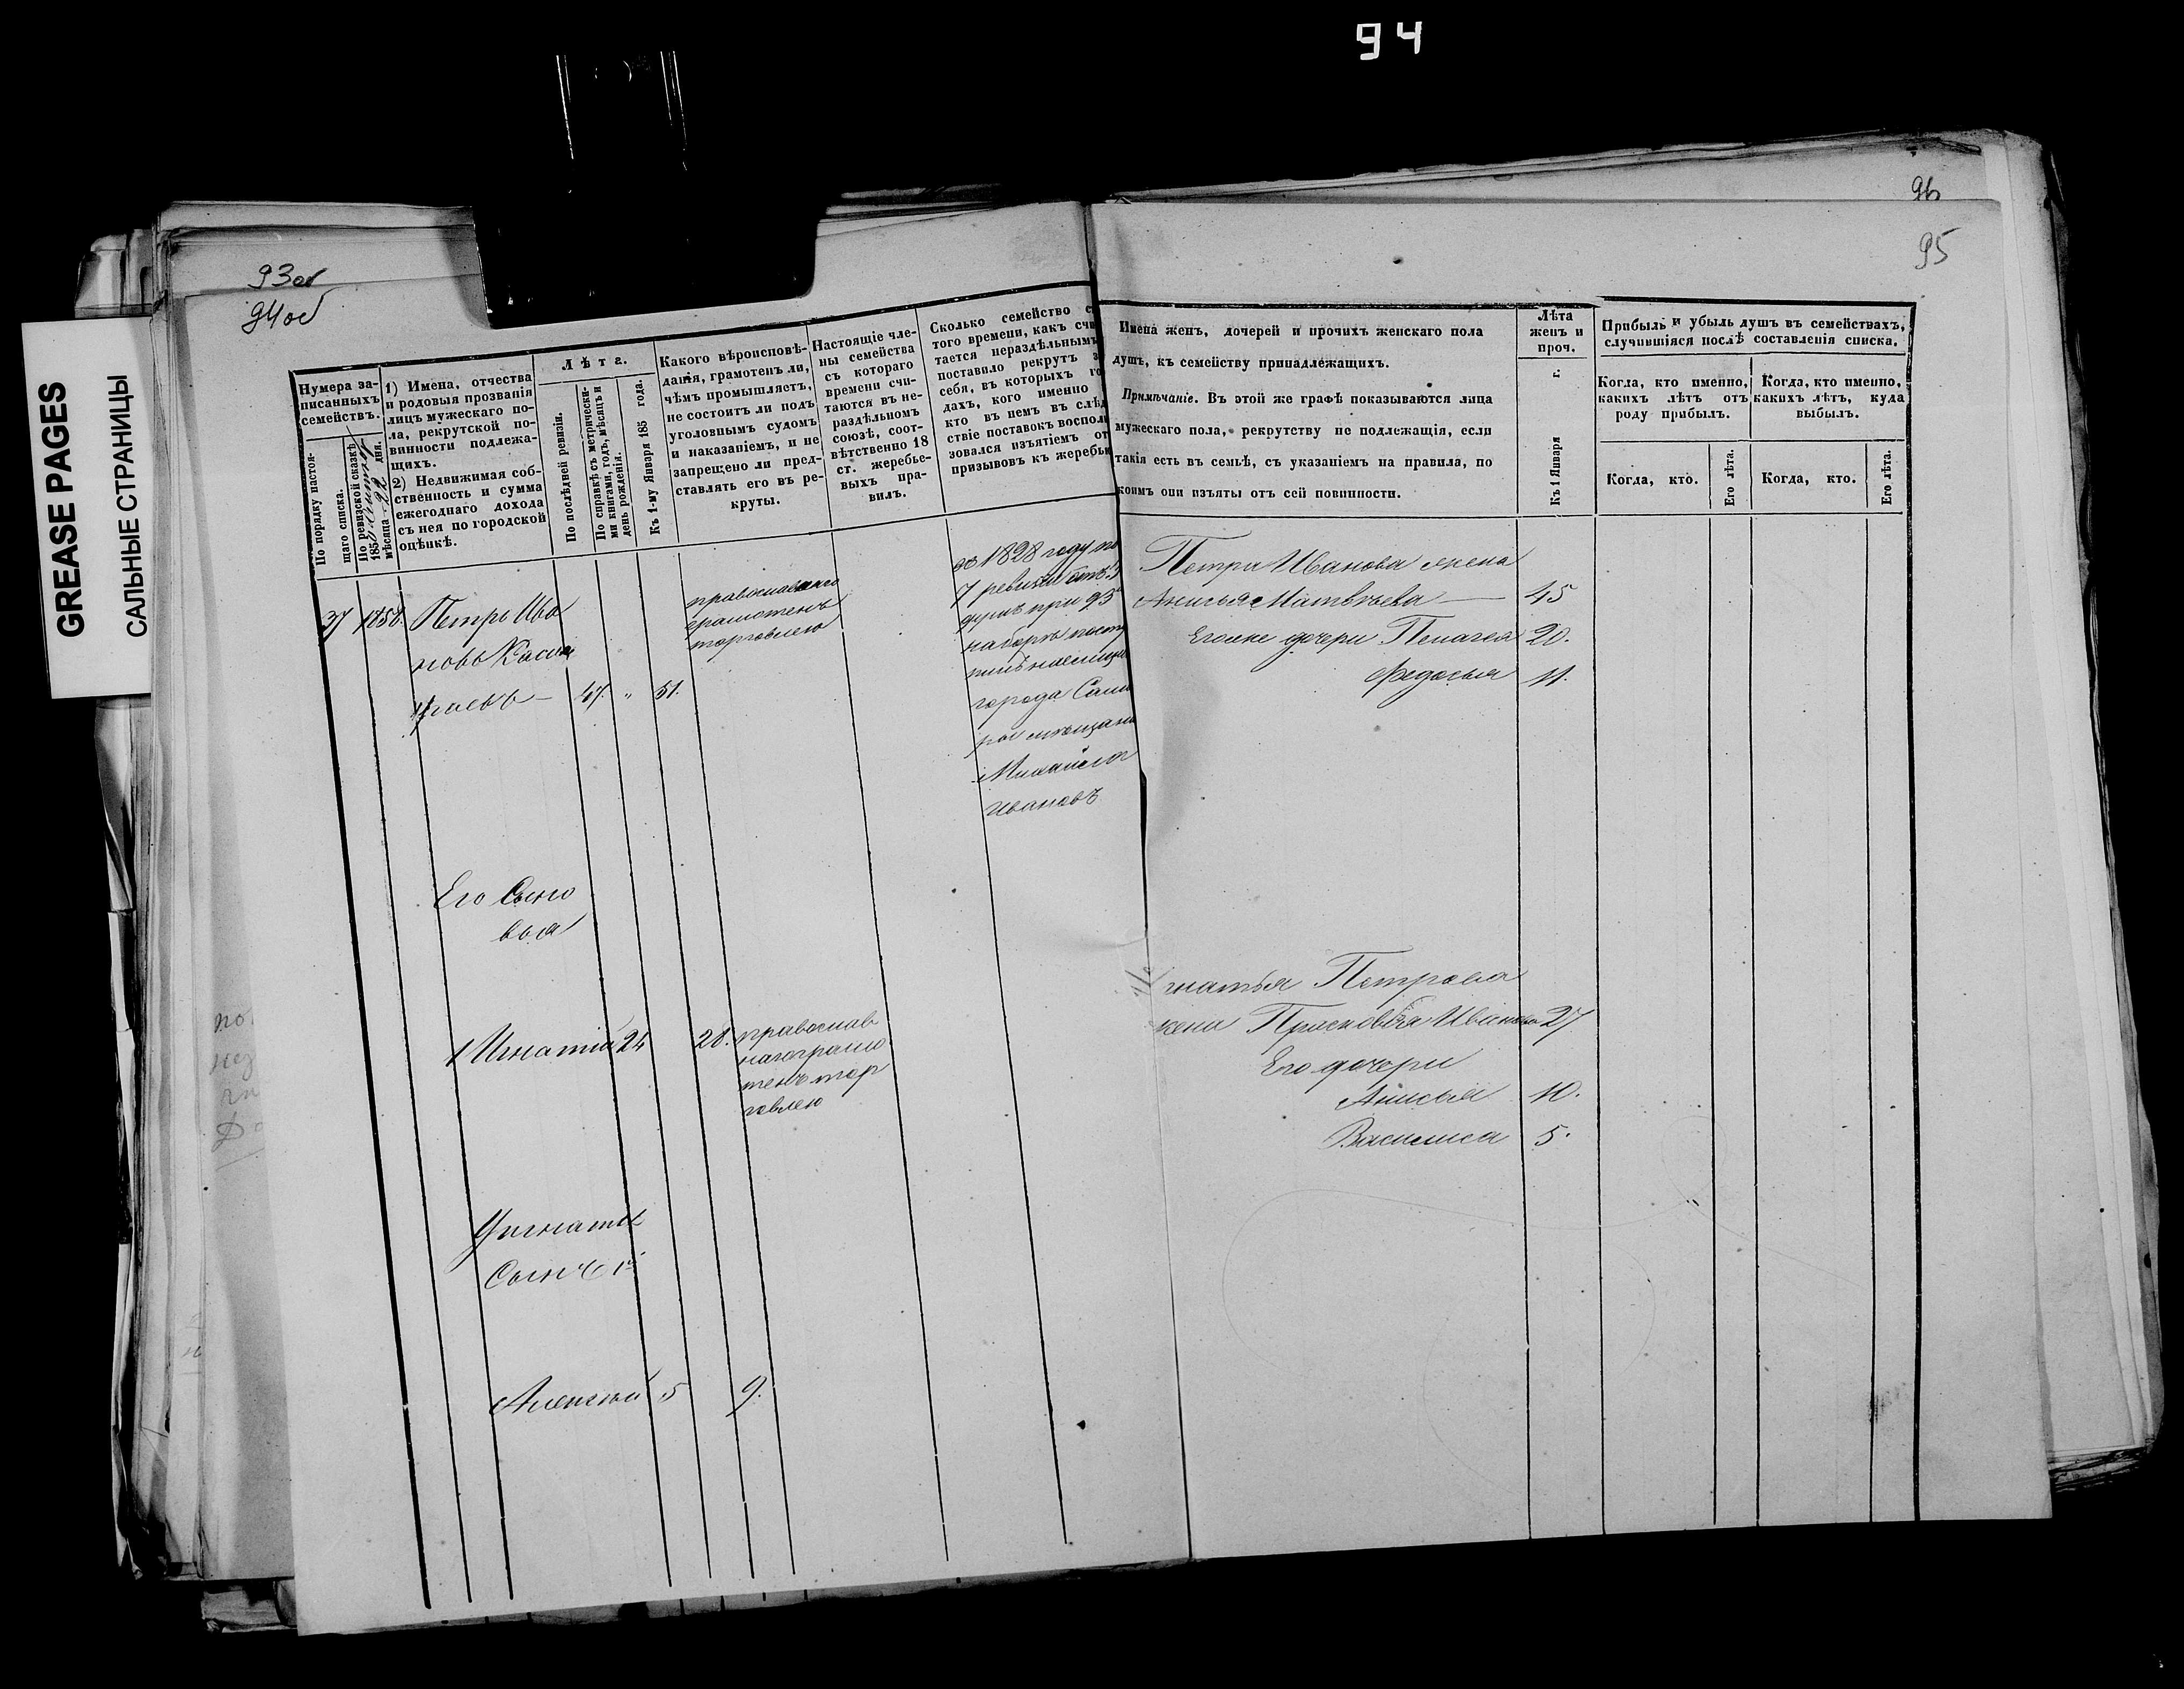 94
96
95
93об
94об
GREASE PAGES
САЛЬНЫЕ СТРАНИЦЫ
Нумера за-
писанныхъ
семействъ.
По порядку настоя-
щаго списка.
По ревизской сказкѣ
185
мѣсяца 22 дня.
1) Имена, отчества
и родовыя прозванія
лицъ мужескаго по-
ла, рекрутской по-
винности подлежа-
щихъ.
2) Недвижимая соб-
ственность и сумма
ежегоднаго дохода
съ нея по городской
оцѣнкѣ.
Лѣта.
По послѣдней ревизіи.
По справкѣ съ метрически-
ми книгами, годъ, мѣсяцъ и
день рожденія.
Къ 1-му Января 185 года.
Какого вѣроисповѣ-
данія, грамотенъ ли,
чѣмъ промышляетъ,
не состоитъ ли подъ
уголовнымъ судомъ
и наказаніемъ, и не
запрещено ли пред-
ставлять его въ ре-
круты.
Настоящіе чле-
ны семейства
съ котораго
времени счи-
таются въ не-
раздѣльномъ
союзѣ, соот-
вѣтственно 18
ст. жеребье-
выхъ пра-
вилъ.
Сколько семейство с
того времени, какъ счи
тается нераздѣльнымъ
поставило рекрутъ з
себя, въ которыхъ го
дахъ, кого именно
кто въ немъ въ слѣд
ствіе поставокъ воспол
зовался изъятіемъ от
призывовъ къ жеребью
Имена женъ, дочерей и прочихъ женскаго пола
душъ, къ семейству принадлежащихъ.
Примѣчаніе. Въ этой же графѣ показываются лица
мужескаго пола, рекрутству не подлежащія, если
такія есть въ семьѣ, съ указаніемъ на правила, по
коимъ они изъяты отъ сей повинности.
Лѣта
женъ и
проч.
Къ 1 Января г.
Прибыль и убыль душъ въ семействахъ,
случившіяся послѣ составленія списка.
Когда, кто именно,
какихъ лѣтъ отъ
роду прибылъ.
Когда, кто именно,
какихъ лѣтъ, куда
выбылъ.
Когда, кто.
Его лѣта.
Когда, кто.
Его лѣта.
37 1858. Петръ Ива
новъ
47. " 51.
православнаго
грамотенъ
торговлею
въ 1828 году по
7 ревизіи
душъ при 95
наборѣ
города Сама
ры мещани
Михайла
Ивановъ
Петра Иванова жена
Анисья Матвѣева — 45
Егоже дочери Пелагея 20.
Федосья 11.
Его Сыно
вья
1 Игнатій 24 28.
православ
наго грамо
тенъ тор
говлею
Игнатья Петрова
жена Прасковья Иванова 27
Его дочери
Анисья 10.
Василиса 5.
У Игнатья
Сынъ 1й
Алексѣй 5 9.